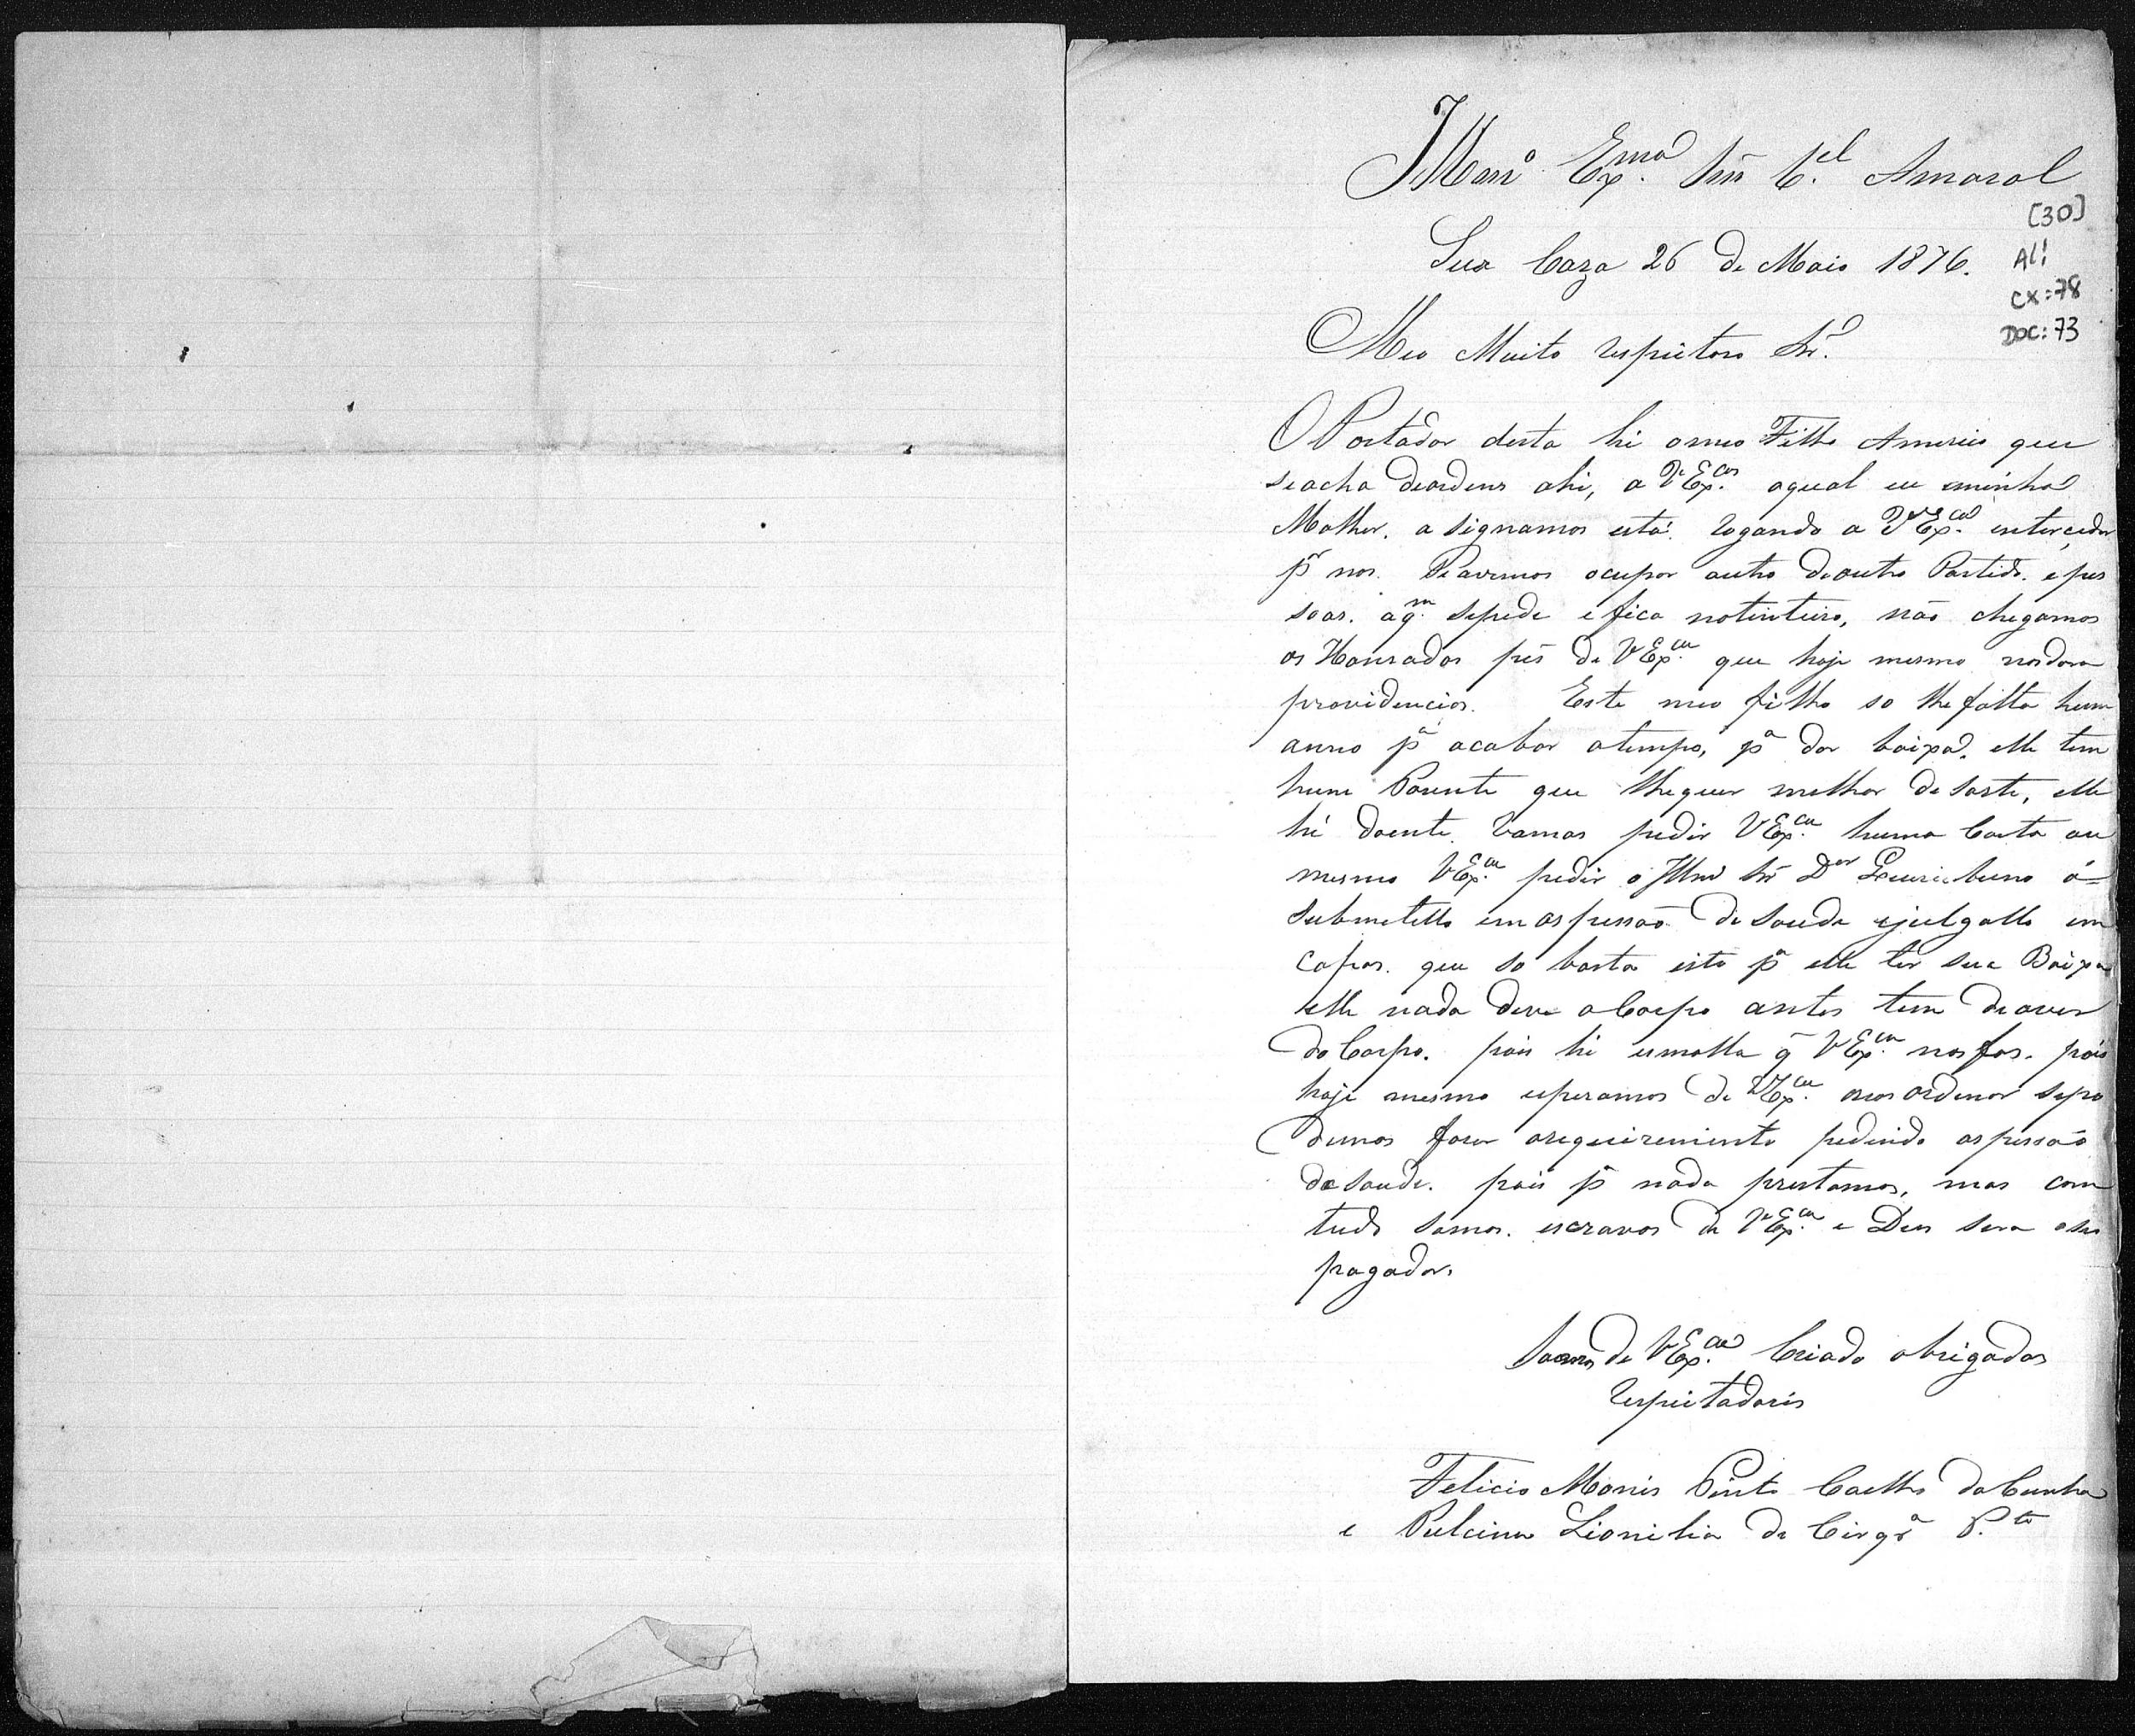 Illmo Exmo Snr Cel Amaral
[30]
Sua Caza 26 de Maio 1876.
Al!
CX:78
DOC:73
Meo Muito respeitoso Snr.
O Portador desta hé omeo Filho Americo que
seacha deordens ahi, a VExcas oqual eu eminha
Molher. a signamos está. rogando a VExca enterceder
pr nos. Seavemos ocupar outro deoutro Partido. epes
soas. aqm sepede e fica notinteiro, não chegamos
os Honrados pés de VExca que hoje mesmo nosdara
providencias. Este meo filho so lhefalta hum
anno pa acabar otempo, pa dar baixa. elle tem
hum Parente que lhequer melhor de sorte, elle
hé doente. Vamos pedir VExca huma Carta ou
mesmo VExca pedir o Illmo Snr Dor ó=
submetello em aspessão de saude ejulgallo em
capas. que so basta isto pa elle ter sua Baixa
elle nada deve oCorpo antes tem deaver
doCorpo. pois hé esmolla q̃ VExca nosfas. pois
hoje mesmo esperamos de VExca nos ordenar sepo
demos faser orequeiremento pedindo aspessão
desaude. pois pa nada prestamos, mas com
tudo somos. escravos de VExca e Deus sera oseo
pagador.
Somos de VExca Criado obrigados
respeitadores
Felicio Moniz Pinto Coelho daCunha
e Pulcina Lionilia de Cirqra P.to